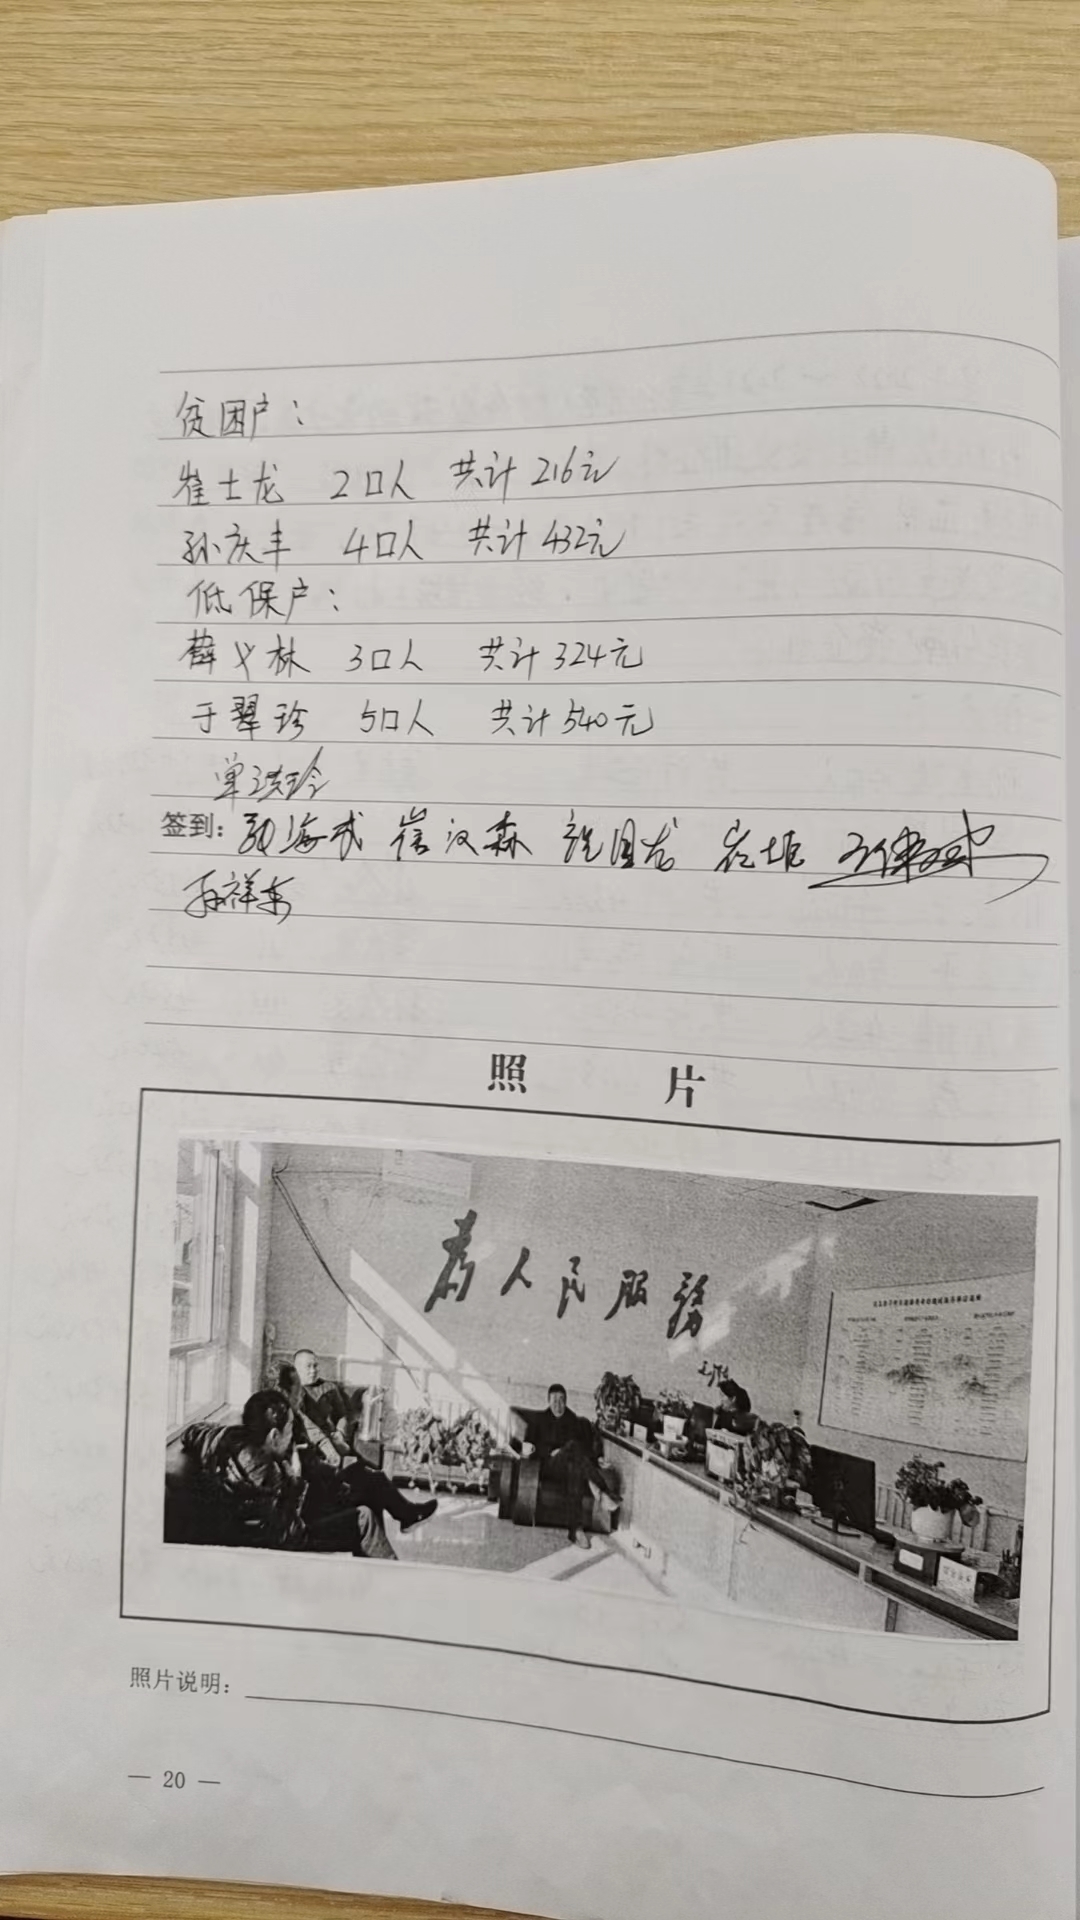 贫困户:
崔士龙 2口人 共计216元
孙庆丰 4口人 共计432元
低保户:
薛义林 3口人 共计324元
于翠珍 5口人 共计540元
单洪玲
签到: 海成 崔汉森
孙祥东
照 片
为人民服務
照片说明:
— 20 —